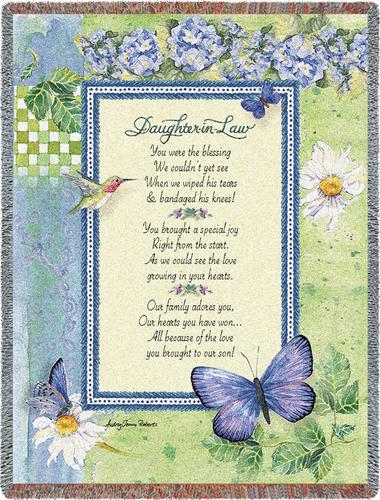 Daughter-in-Law
You were the blessing
We couldn't yet see
When we wiped his tears
& bandaged his knees!
You brought a special joy
Right from the start.
As we could see the love
growing in your hearts.
Our family adores you,
Our hearts you have won...
All because of the love
you brought to our son!
Audrey Jeanne Roberts